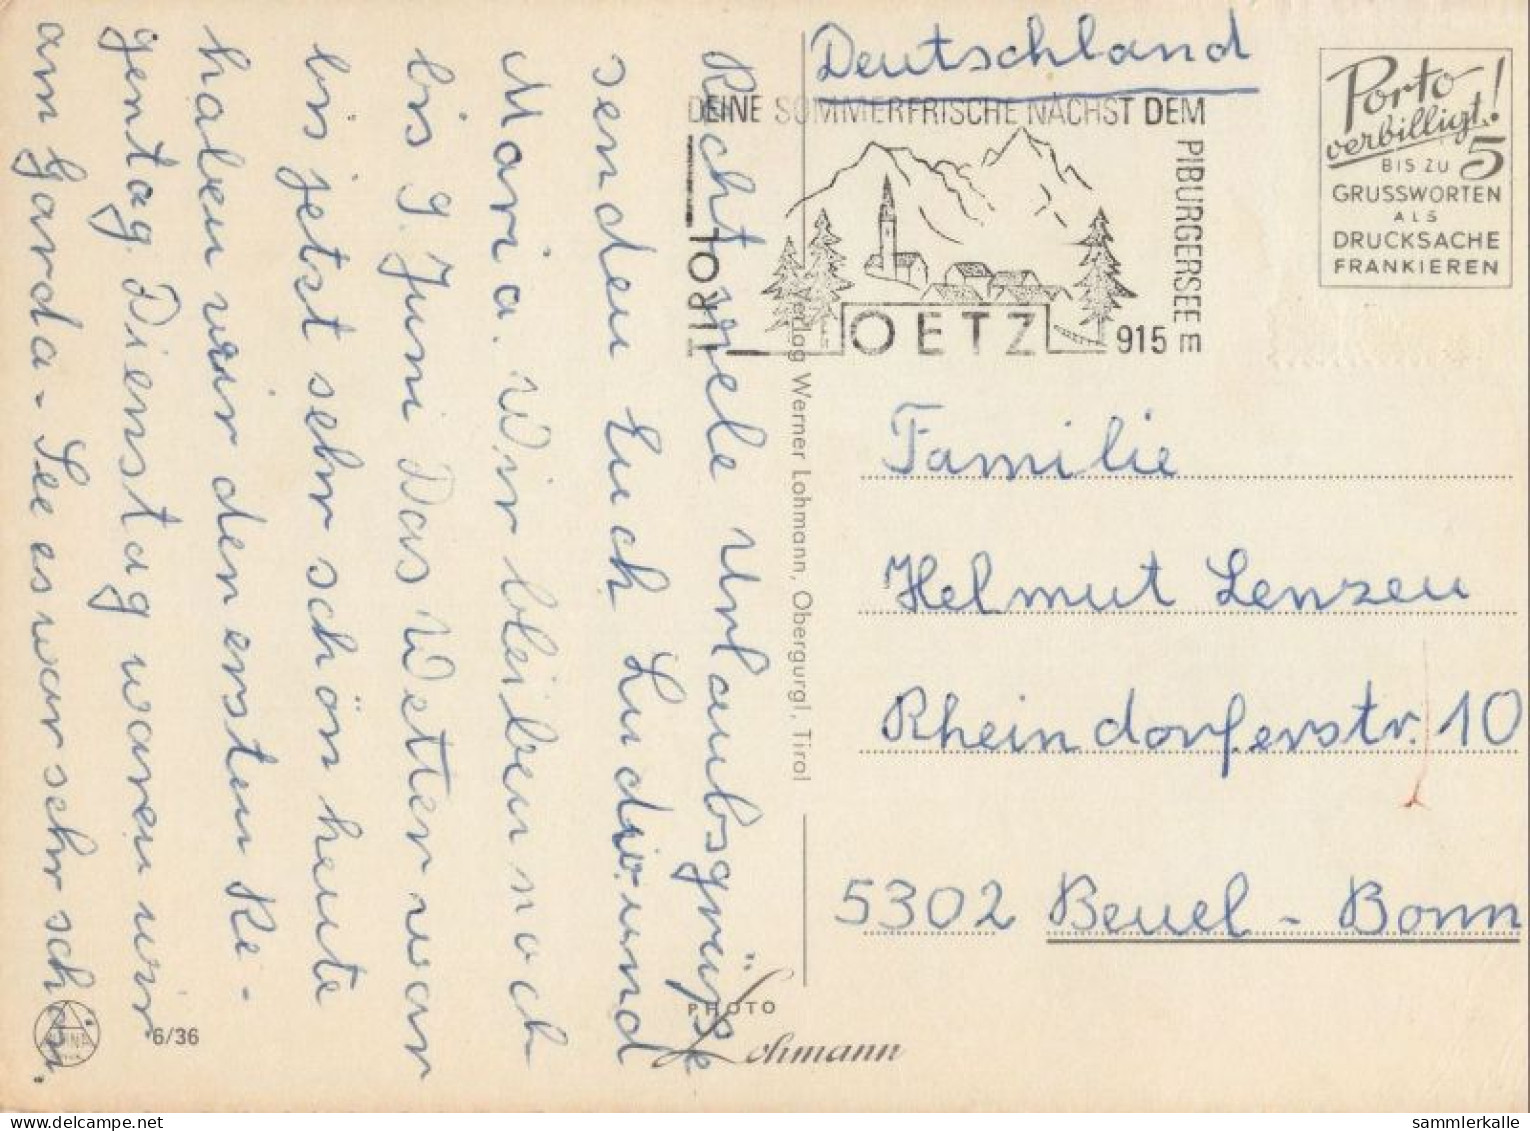 Recht viele Urlaubsgrüße
senden Euch Ludi. und
Maria. Wir bleiben noch
bis 9. Juni Das Wetter war
bis jetst sehr schön heute
haben wir den ersten Re-
gentag. Dienstag waren wir
am Garda-See es war sehr schön.
Deutschland
DEINE SOMMERFRISCHE NÄCHST DEM
PIBURGERSEE
TIROL
OETZ
915
Porto
verbilligt!
BIS ZU 5
GRUSSWORTEN
ALS
DRUCKSACHE
FRANKIEREN
Verlag Werner Lohmann, Obergurgl, Tirol
Familie
Helmut Lenzen
Rheindorferstr. 10
5302 Beuel - Bonn
PHOTO
Lohmann
6/36
sammlerkalle